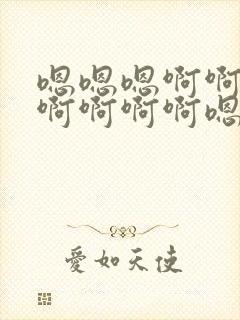 嗯嗯嗯啊啊
啊啊啊啊嗯
愛如天使